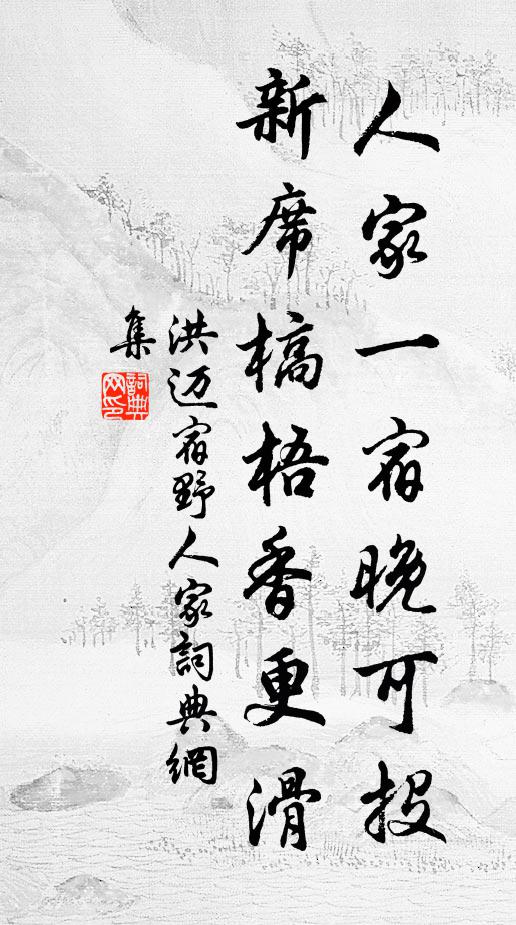 人家一宿晚可投
新席槁梧香更滑
洪迈宿野人家詞典網
集
詞典網印